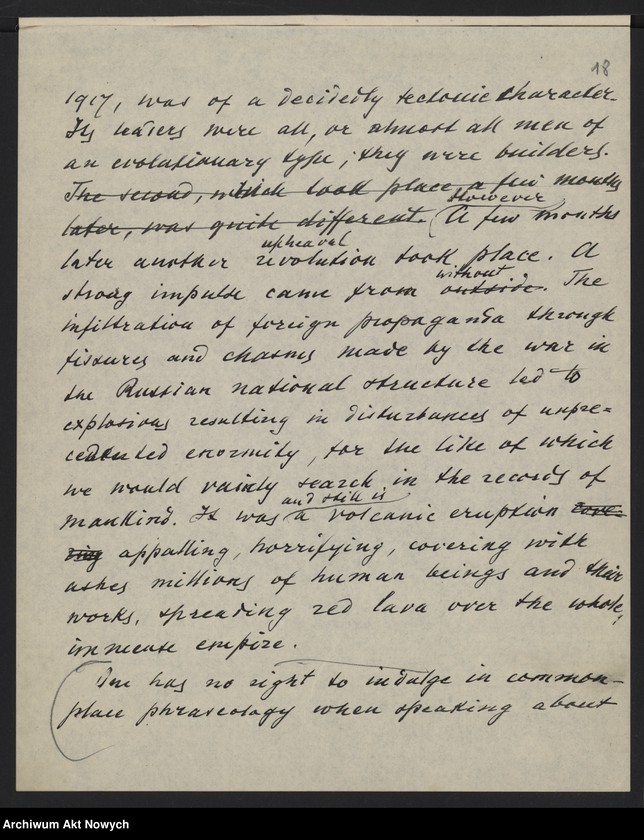 18
1917, was of a decidedly tectonic character.
Its leaders were all, or almost all men of
an evolutionary type; they were builders.
The second, which took place, a few months
However
later, was quite different. A few months
upheaval
later another revolution took place. A
without
strong impulse came from outside. The
infiltration of foreign propaganda through
fissures and chasms made by the war in
the Russian national structure led to
explosions resulting in disturbances of unpre=
cedented enormity, for the like of which
we would vainly search in the records of
and still is
mankind. It was a volcanic eruption cove-
ring appalling, horrifying, covering with
ashes millions of human beings and their
works, spreading red lava over the whole,
immense empire.
One has no right to indulge in common-
place phraseology when speaking about
Archiwum Akt Nowych